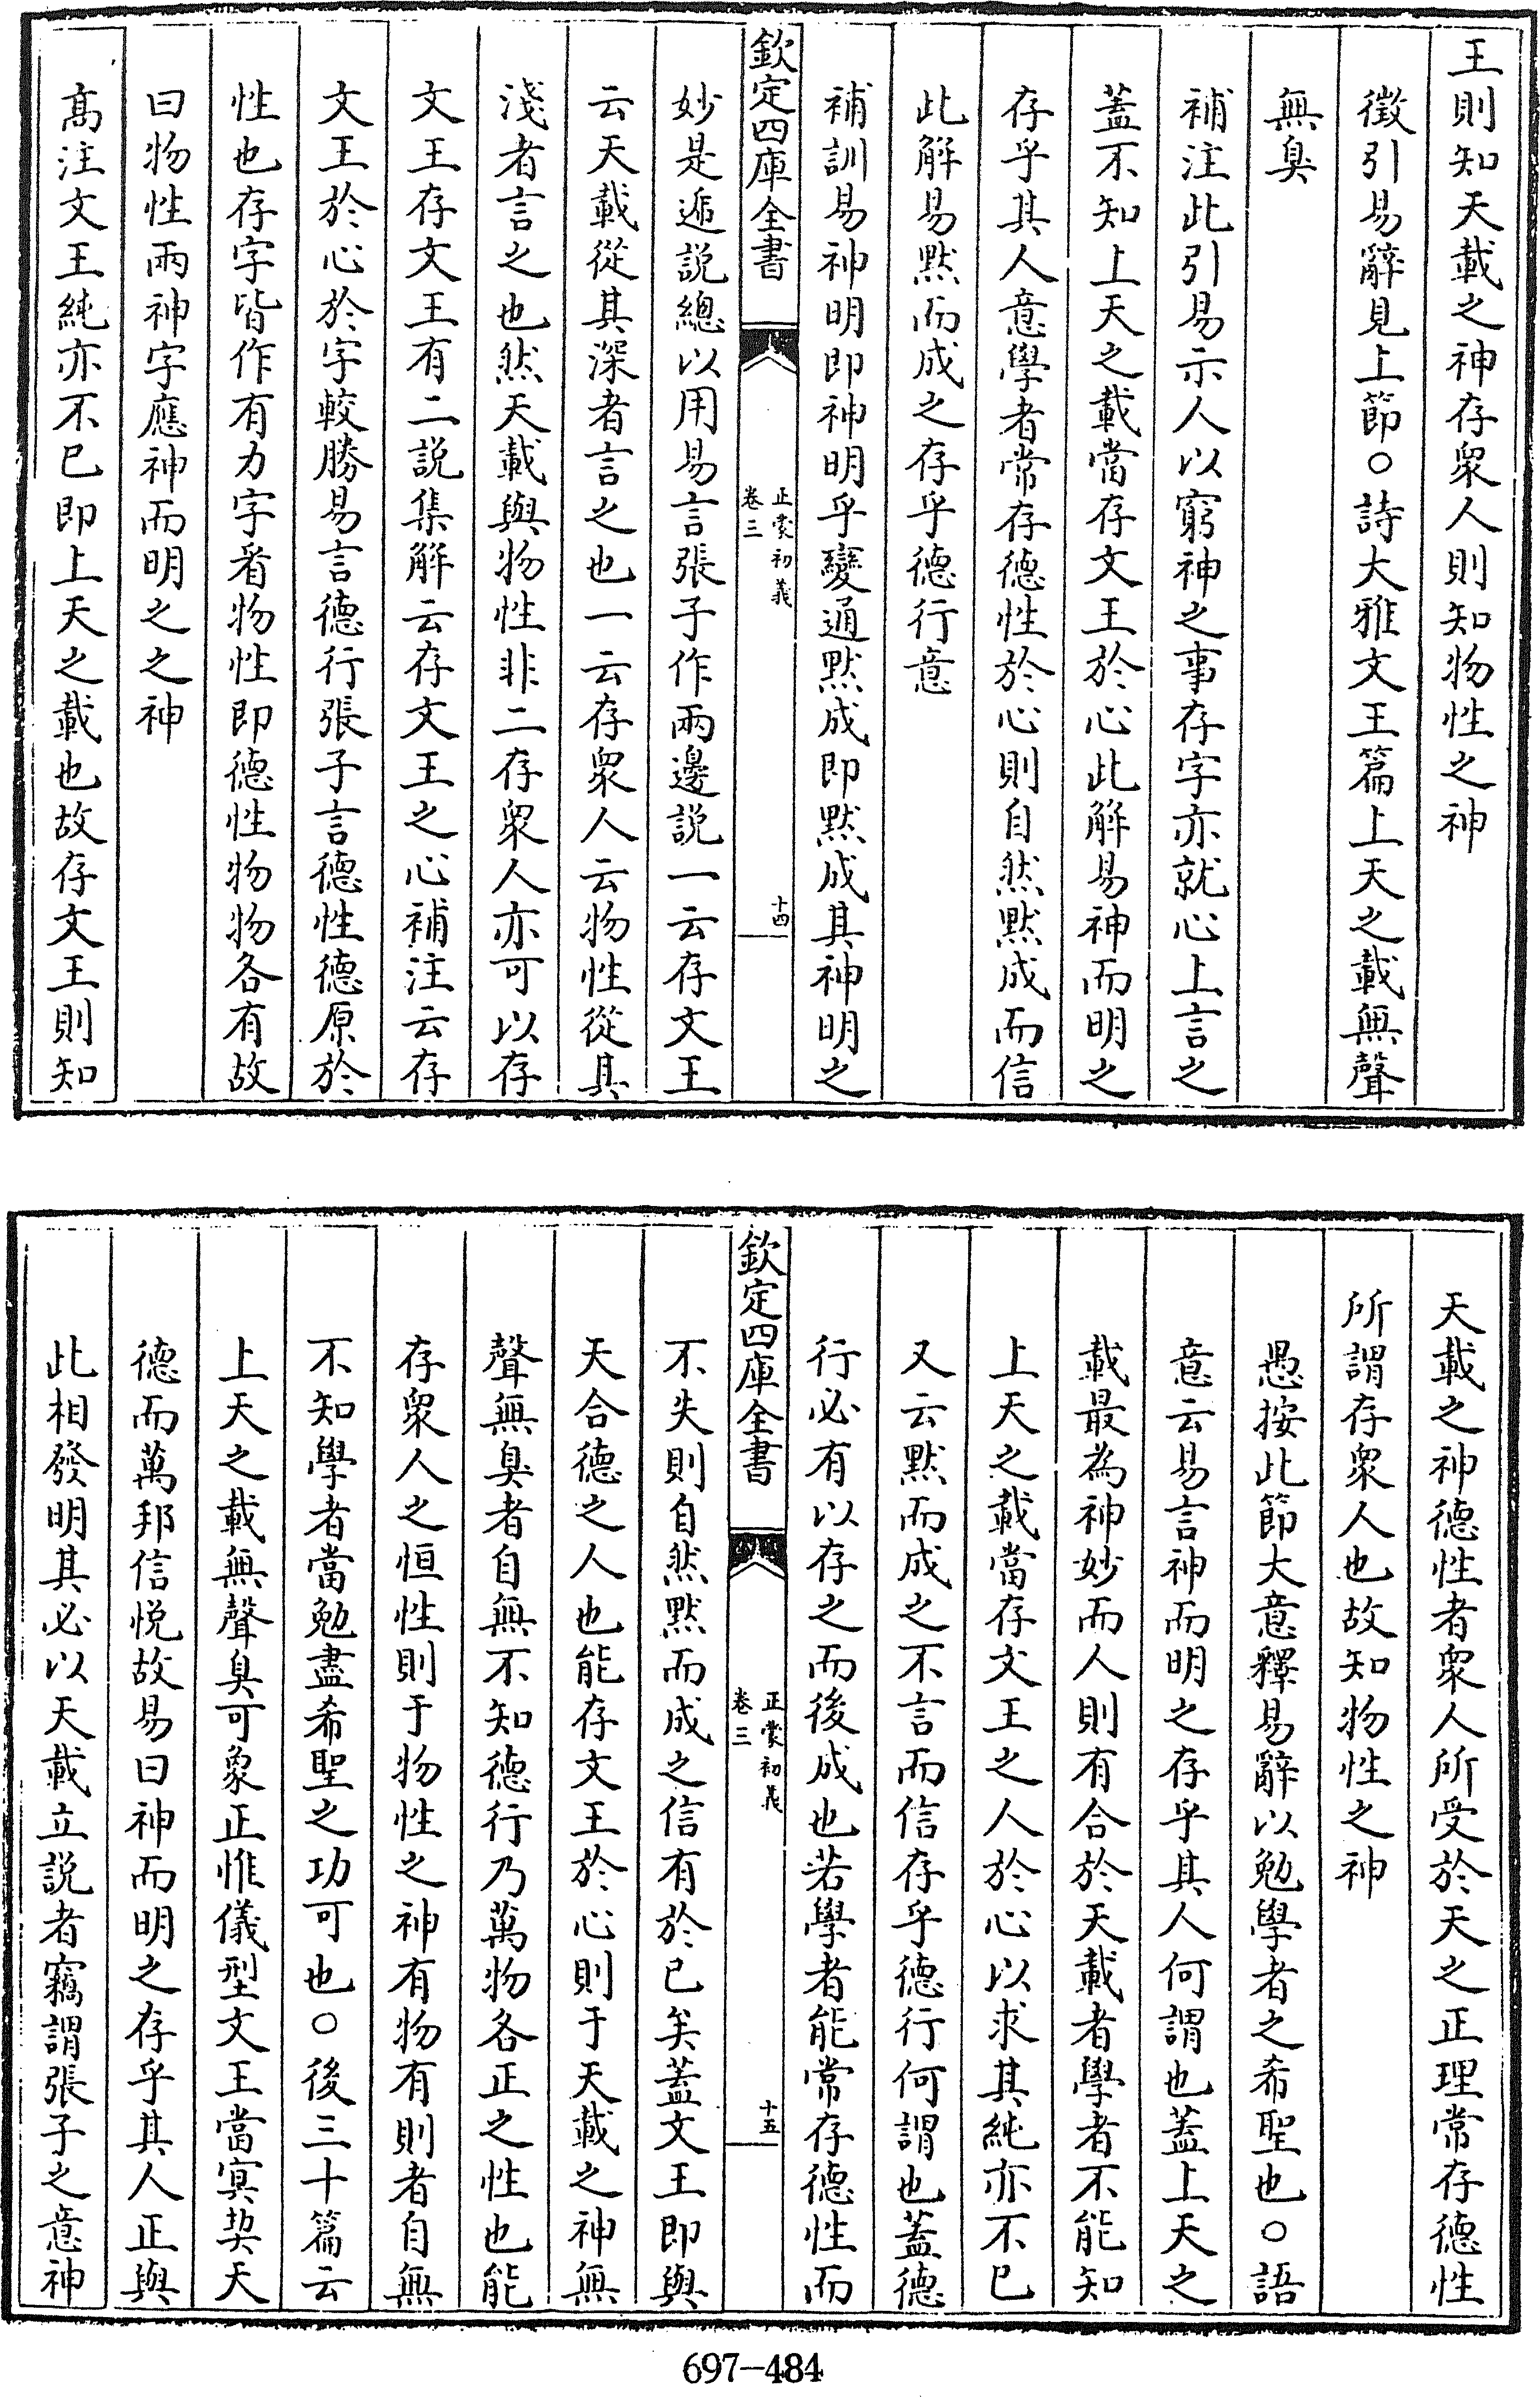 王則知天載之神存衆人則知物性之神
徵引易辭見上節○詩大雅文王篇上天之載無聲
無臭
補注此引易示人以窮神之事存字亦就心上言之
蓋不知上天之載當存文王於心此解易神而明之
存乎其人意學者常存德性於心則自然默成而信
此解易默而成之存乎德行意
補訓易神明即神明乎變通默成即默成其神明之
欽定四庫全書
正蒙初義
卷三
十四
妙是遞説總以用易言張子作兩邊説一云存文王
云天載從其深者言之也一云存衆人云物性從其
淺者言之也然天載與物性非二存衆人亦可以存
文王存文王有二説集解云存文王之心補注云存
文王於心於字較勝易言德行張子言德性德原於
性也存字皆作有力字看物性即德性物物各有故
曰物性兩神字應神而明之之神
髙注文王純亦不已即上天之載也故存文王則知
天載之神德性者衆人所受於天之正理常存德性
所謂存衆人也故知物性之神
愚按此節大意釋易辭以勉學者之希聖也○語
意云易言神而明之存乎其人何謂也蓋上天之
載最為神妙而人則有合於天載者學者不能知
上天之載當存文王之人於心以求其純亦不已
又云默而成之不言而信存乎德行何謂也蓋德
行必有以存之而後成也若學者能常存德性而
欽定四庫全書
正蒙初義
卷三
十五
不失則自然默而成之信有於已矣蓋文王即與
天合德之人也能存文王於心則于天載之神無
聲無臭者自無不知德行乃萬物各正之性也能
存衆人之恒性則于物性之神有物有則者自無
不知學者當勉盡希聖之功可也○後三十篇云
上天之載無聲臭可象正惟儀型文王當冥契天
德而萬邦信悅故易曰神而明之存乎其人正與
此相發明其必以天載立説者竊謂張子之意神
697-484